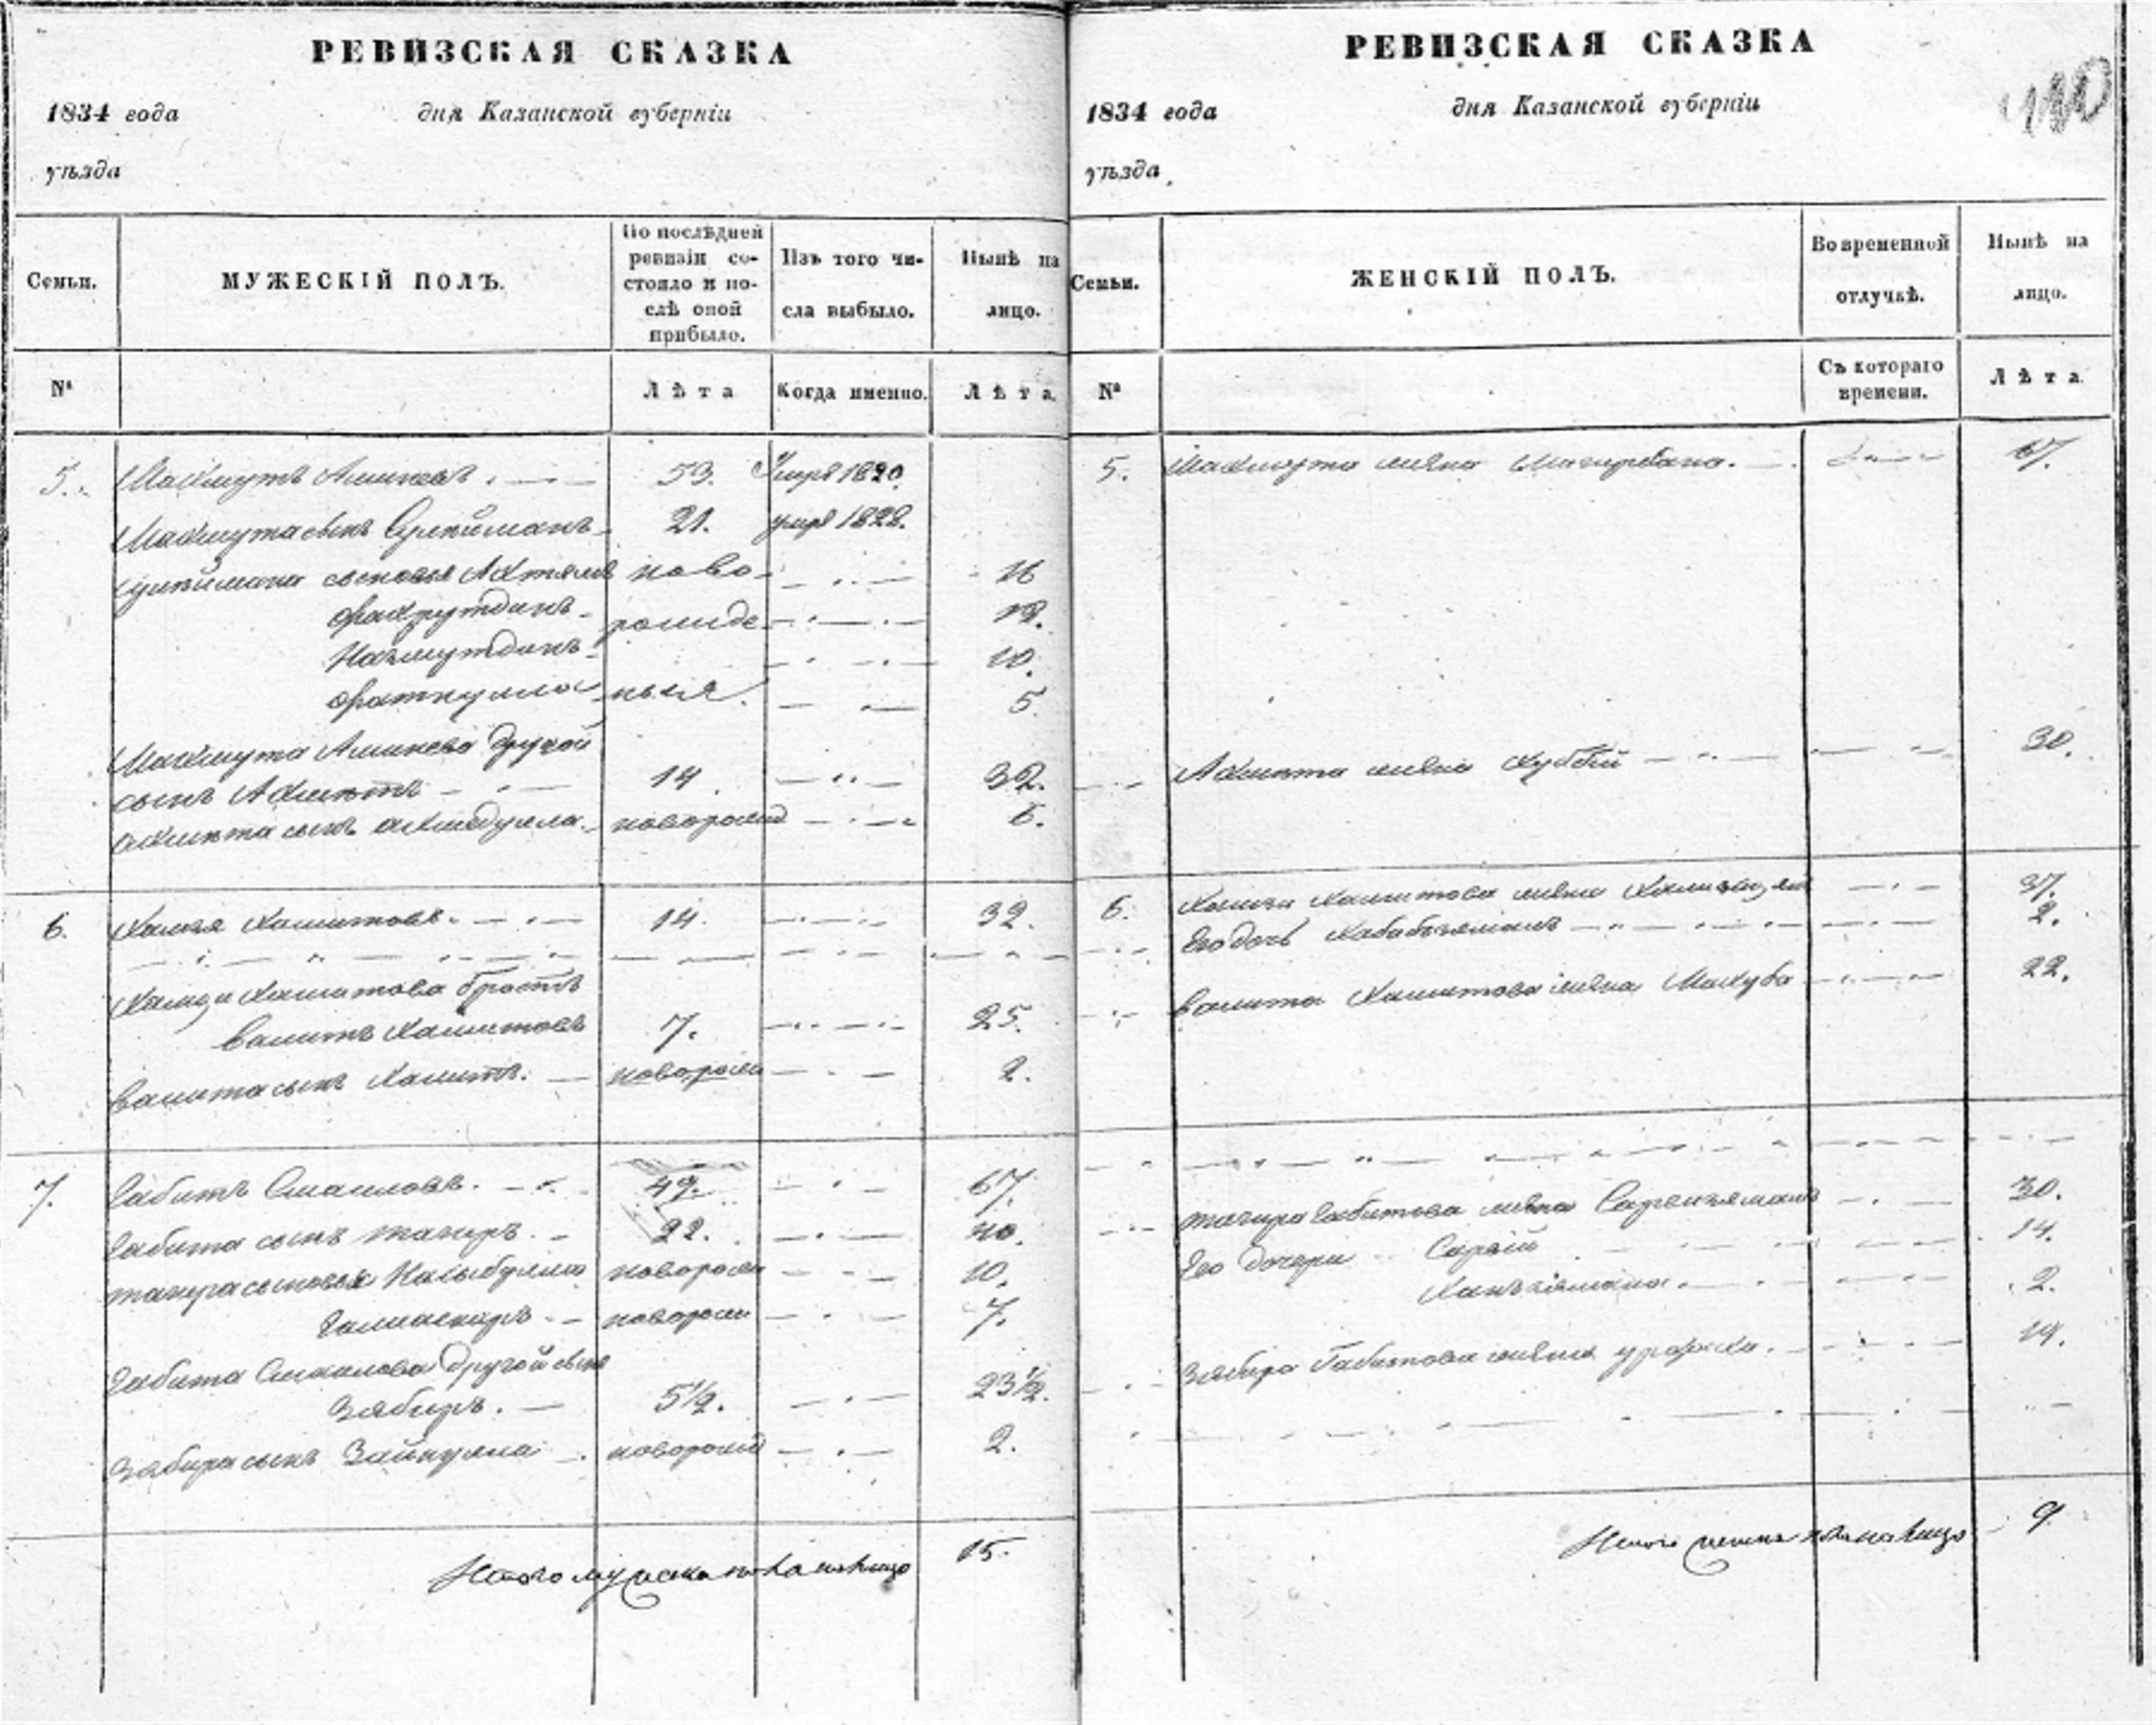 РЕВИЗСКАЯ СКАЗКА
1834 года дня Казанской губерніи
уѣзда
Семьи. МУЖЕСКІЙ ПОЛЪ. По послѣдней ревизіи состояло и послѣ оной прибыло. Изъ того числа выбыло. Нынѣ на лицо.
№ Лѣта Когда именно. Лѣта.
5. Махмутъ Аминевъ. 53. Умре 1820.
Махмута сынъ Сулейманъ 21. умре 1828.
Сулеймана сыновья Ахтямъ ново- 16
Фахрутдинъ рожде- 12.
Назмутдинъ 10.
Фаткулла ныя. 5.
Махмута Аминева другой
сынъ Ахметъ 14. 32.
Ахмета сынъ 6.
6. Хамза Хамитовъ. 14. 32.
Хамзи Хамитова братъ
Вамитъ Хамитовъ 7. 25.
Вамита сынъ Хамитъ. новорож 2.
7. Габитъ Смаиловъ. 49. 67.
Габита сынъ Тагиръ. 22. 40.
Тагира сыновья Насыбулла новорож 10.
Галиаскаръ новорож 7.
Габита Смаилова другой сынъ
Зябиръ. 5½. 23½.
Зябира сынъ Зайнулла новорожд 2.
Итого мужеска пола налицо 15.
РЕВИЗСКАЯ СКАЗКА
1834 года дня Казанской губерніи
уѣзда
Семьи. ЖЕНСКІЙ ПОЛЪ. Во временной отлучкѣ. Нынѣ на лицо.
№ Съ котораго времени. Лѣта.
5. Махмута жена 67.
Ахмета жена 30.
6. Хамзи Хамитова жена 37.
Его дочь 2.
Вамита Хамитова жена 22.
Тагира Габитова жена 30.
Его дочери 14.
2.
Зябира Габитова жена 19.
Итого женска пола налицо 9